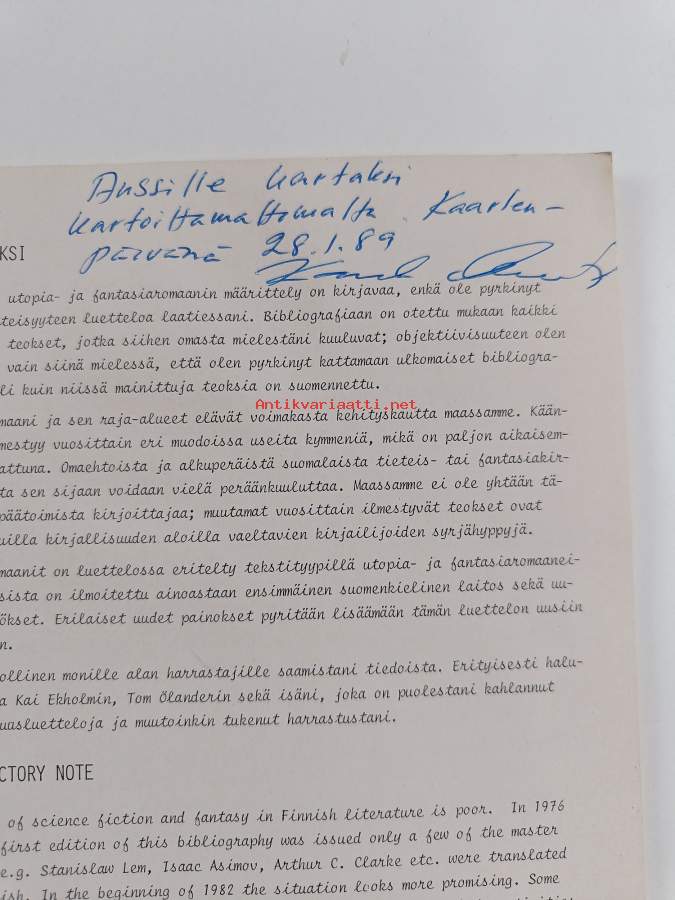 Anssille kartaksi
kartoittamattomalta. Kaarlen-
päivänä 28.1.89
KSI
utopia- ja fantasiaromaanin määrittely on kirjavaa, enkä ole pyrkinyt
teisyyteen luetteloa laatiessani. Bibliografiaan on otettu mukaan kaikki
teokset, jotka siihen omasta mielestäni kuuluvat; objektiivisuuteen olen
vain siinä mielessä, että olen pyrkinyt kattamaan ulkomaiset bibliogra-
li kuin niissä mainittuja teoksia on suomennettu.
Antikvariaatti.net
maani ja sen raja-alueet elävät voimakasta kehityskautta maassamme. Kään-
mestyy vuosittain eri muodoissa useita kymmeniä, mikä on paljon aikaisem-
attuna. Omaehtoista ja alkuperäistä suomalaista tieteis- tai fantasiakir-
ta sen sijaan voidaan vielä peräänkuuluttaa. Maassamme ei ole yhtään tä-
päätoimista kirjoittajaa; muutamat vuosittain ilmestyvät teokset ovat
uilla kirjallisuuden aloilla vaeltavien kirjailijoiden syrjähyppyjä.
maanit on luettelossa eritelty tekstityypillä utopia- ja fantasiaromaanei-
sista on ilmoitettu ainoastaan ensimmäinen suomenkielinen laitos sekä uu-
ökset. Erilaiset uudet painokset pyritään lisäämään tämän luettelon uusiin
n.
ollinen monille alan harrastajille saamistani tiedoista. Erityisesti halu-
a Kai Ekholmin, Tom Ölanderin sekä isäni, joka on puolestani kahlannut
uasluetteloja ja muutoinkin tukenut harrastustani.
CTORY NOTE
of science fiction and fantasy in Finnish literature is poor. In 1976
first edition of this bibliography was issued only a few of the master
e.g. Stanislaw Lem, Isaac Asimov, Arthur C. Clarke etc. were translated
ish. In the beginning of 1982 the situation looks more promising. Some